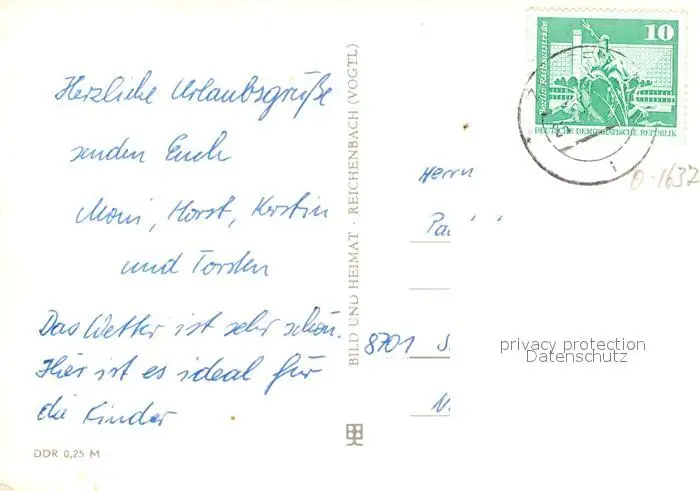 Herzliche Urlaubsgrüße
senden Euch
Moni, Horst, Kerstin
und Torsten
Das Wetter ist sehr schön.
Hier ist es ideal für
die Kinder
DDR 0,25 M
BILD UND HEIMAT · REICHENBACH (VOGTL)
10
Berlin-Rathausstraße
DEUTSCHE DEMOKRATISCHE REPUBLIK
0-1637
Herrn
8701
privacy protection
Datenschutz